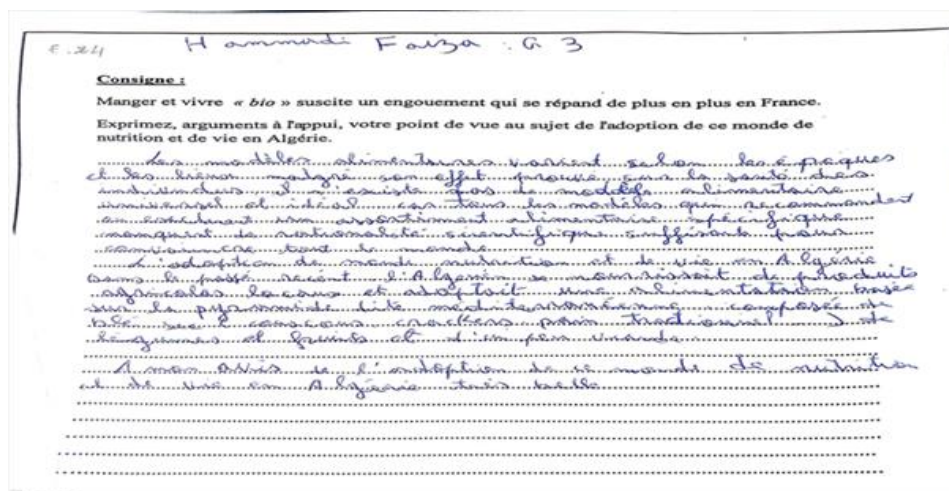 E.24 Hammadi Faiza : G 3
Consigne :
Manger et vivre « bio » suscite un engouement qui se répand de plus en plus en France.
Exprimez, arguments à l'appui, votre point de vue au sujet de l'adoption de ce monde de
nutrition et de vie en Algérie.
Les modèles alimentaires varient selon les époques
et les lieux malgré son effet prouvé sur la santé des
individus, il n'existe pas de modèle alimentaire
universel et idéal car tous les modèles qui recommandent
en excluant un assortiment alimentaire spécifique
manquent de rationalité scientifique suffisante pour
convaincre tout le monde
L'adoption de monde nutrition et de vie en Algérie
dans le passé récent l'Algérien se nourrissait de produits
agricoles locaux et adoptait une alimentation basée
sur la pyramide dite méditerranéenne composée de
blé sec (couscous crackers pain traditionnel) de
légumes et fruits et d'un peu viande
A mon avis l'adoption de ce monde de nutrition
et de vie en Algérie très belle